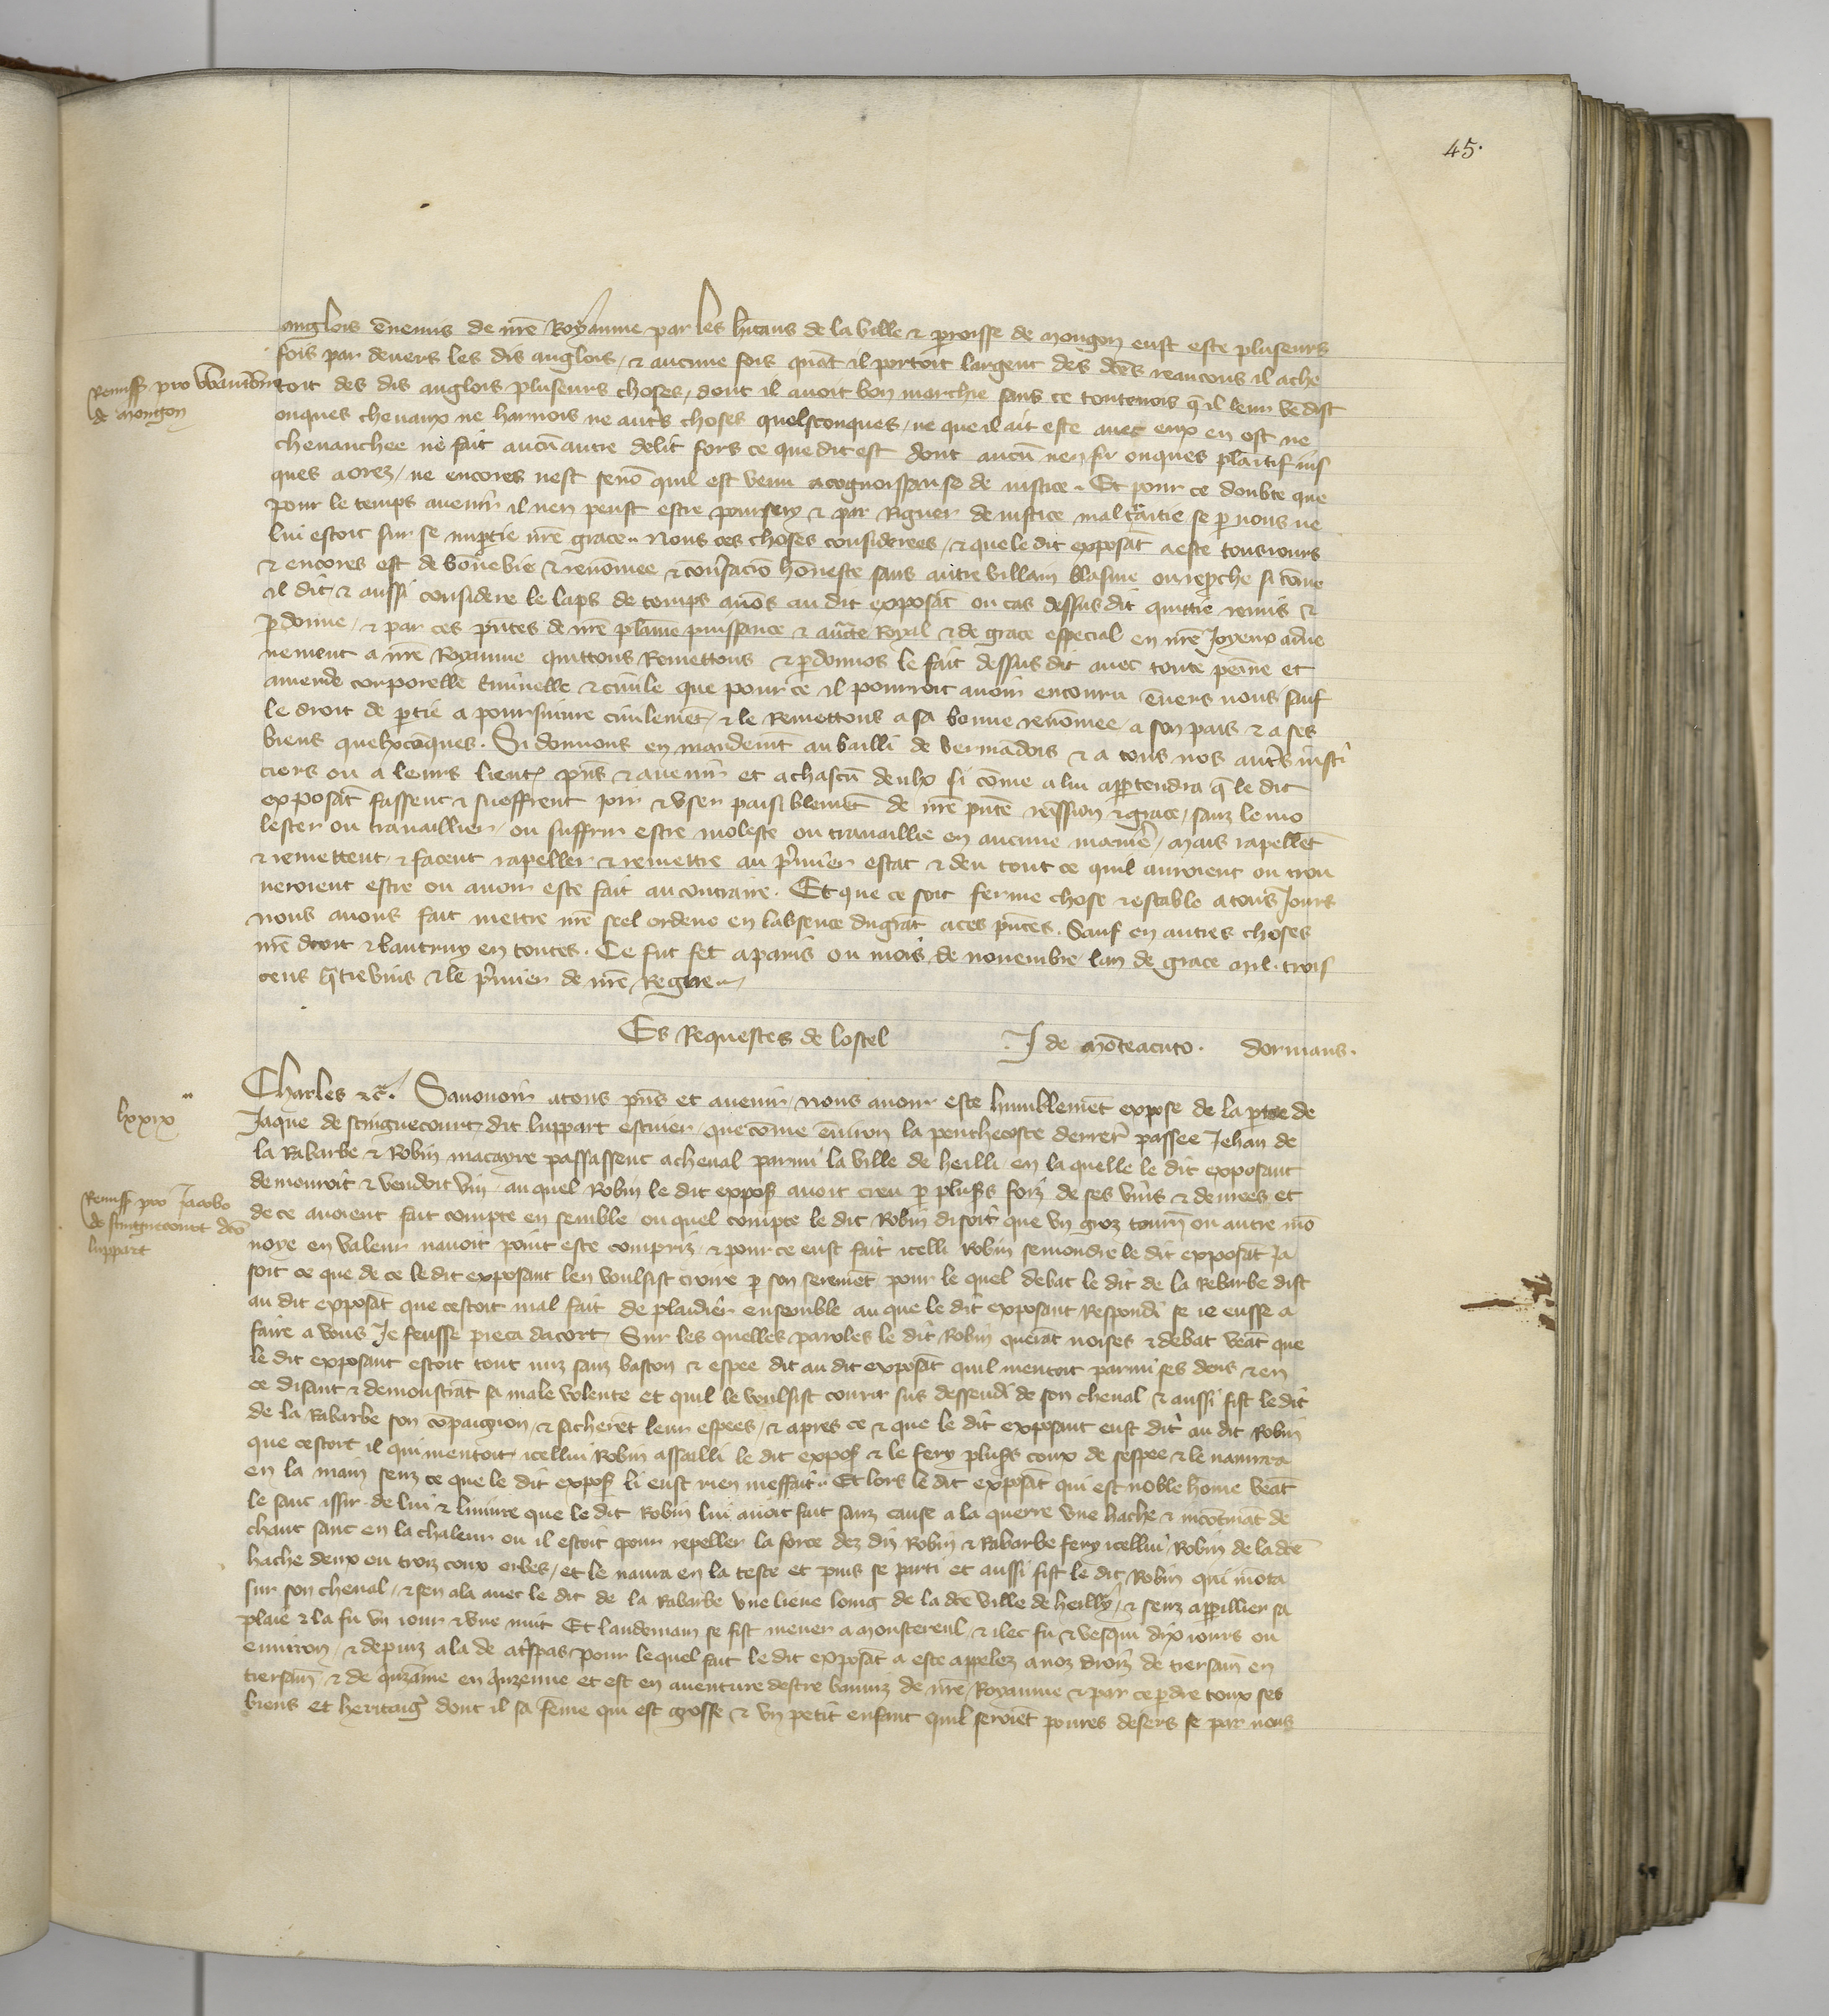 45.
anglois ēnemis de nr̄e Royaume par les hītans de la ville & p̄roisse de mongon eust este pluseurs
fois par devers les dis anglois / & aucune fois quāt il portoit largent des dc̄es reancons il ache
Remiss pro
de mongon
toit des dis anglois pluseurs choses / dont il avoit bon marchie sans ce toutevois q̄ il leur vēdist
onques chevaux ne harnois ne autr̄s choses quelsconques / ne que il ait este avec eux en ost ne
chevauchee ne fait aucū autre delit fors ce que dit est dont aucū nen fu onques plaītif jus
ques a orez / ne encores nest senō quil est venu a cognoissance de justice. Et pour ce doubte que
pour le temps avenir il nen peust estre poursuy & par riguer de justice mal traitie se p̄ nous ne
lui estoit sur se imp̄tie nr̄e grace. Nous ces choses considerees / & que le dit exposāt a este tousjours
& encores est de bōne vie & renōmee & cōv̄sacio hōneste sans autre villain blasme ou rep̄che si cōme
il dit & aussi considere le laps de temps avōs au dit exposāt ou cas dessus dit quittie remis &
p̄donne / & par ces pn̄tes de nr̄e plaīne puissance & auc̄te Royal & de grace especial en nr̄e Joyeux adve
nement a nr̄e Royaume quittons Remettons & p̄donnos le fait dessus dit avec toute peine et
amende corporelle criminelle & civile que pour ce il pourroit avoir encouru ēvers nous / sauf
le droit de p̄tie a poursuivre civilemēt / & le Remettons a sa bonne renōmee / a son pais & a ses
biens quelxcōques. Si donnons en mandemt̄ au bailli de vermādois & a tous nos autr̄s justi
ciers ou a leurs lieuxtz̄ pn̄s & avenir et a chascū deulx si cōme a lui app̄tendra q̄ le dit
exposāt fassent & sueffrent joir & user paisiblemēt de nr̄e pn̄te remission & grace / sanz le mo
lester ou travaillier / ou suffrir estre moleste ou travaillie en aucune manie / mais rapellēt
& remettent & facent rapeller & remettre au p̄mier estat & deu tout ce quil auroient ou trou
veroient estre ou avoir este fait au contraire. Et que ce soit ferme chose & estable a tous Jours
nous avons fait mettre nr̄e seel ordene en labsence du grāt a ces pn̄tes. Sauf en autres choses
nr̄e droit & lautruy en toutes. Ce fut fet a paris ou mois de novembre lan de grace mil. trois
cens q̄trevins & le p̄mier de nr̄e Regne
Es Requestes de lostel J de mōteacuto. dormans.
lxxix
Charles &c̄. Savovoir a tous pn̄s et avenir / nous avoir este humblemēt expose de la partie de
Jaque de stinguecourt dit luppart escuier / que cōme ēviron la penthecoste derrer̄ passee Jehan de
la Rabarbe & Robin macayre passassent a cheval parmi la ville de heilli en la quelle le dit exposant
Remiss pro Jacobo
de stinguecourt dc̄o
luppart
demouroit & vendoit vin au quel Robin le dit expos̄ avoit creu p̄ plus̄s foiz de ses vins & denrees et
de ce avoient fait compte en semble ou quel compte le dit Robin disoit que un groz tourn̄ ou autre mō
noye en valeur navoit point este compriz / & pour ce eust fait icelli Robin semondre le dit exposāt Ja
soit ce que de ce le dit exposant len voulsist croire p̄ son seremēt pour le quel debat le dit de la Rebarbe dist
au dit exposāt que cestoit mal fait de plaidier ensemble au que le dit exposant respondi se je eusse a
faire a vous Je feusse pieca dacort Sur les quelles paroles le dit Robin querāt noises & debat veāt que
le dit exposant estoit tout nuz sanz baston & espee dit au dit exposāt quil mentoit parmi ses dens & en
ce disant & demonstrāt sa male volente et quil le voulsist courir sus dessendi de son cheval & aussi fist le dit
de la Rabarbe son cōpaignon / & sacheret leur espees / & apres ce & que le dit exposant eust dit au dit Robin
que cestoit il qui mentoit icellui Robin assailli le dit expos̄ & le fery plus̄s coux de sespee & le navra
en la main senz ce que le dit expos̄ li eust rien meffait. Et lors le dit exposāt qui est noble hōme veāt
le sanc issir de lui & linjure que le dit Robin lui avoit fait sanz cause ala querre une hache & incōtināt de
chaut sanc en la chaleur ou il estoit pour repeller la force dez diz Robin & Rabarbe fery icellui Robin de la dc̄e
hache deux ou troiz coux orbes / et le navra en la teste et puis se parti et aussi fist le dit Robin qui mōta
sur son cheval / & sen ala avec le dit de la Rabarbe une lieue loing de la dc̄e ville de heilly / & senz app̄illier sa
plaie & la fu un jour & une nuit Et landemain se fist mener a monstereul & ilec fu & vesqui dix jours ou
environ / & depuiz ala de tr̄spas Pour lequel fait le dit exposāt a este appelez a noz droiz de tiersain̄ en
tiersain̄ & de q̄nzaine en q̄nzeinne et est en aventure destre banniz de nr̄e Royaume & par ce p̄dre toux ses
biens et heritaiḡ dont il sa feme qui est grosse & un petit enfant quil seroiēt povres desers se par nous